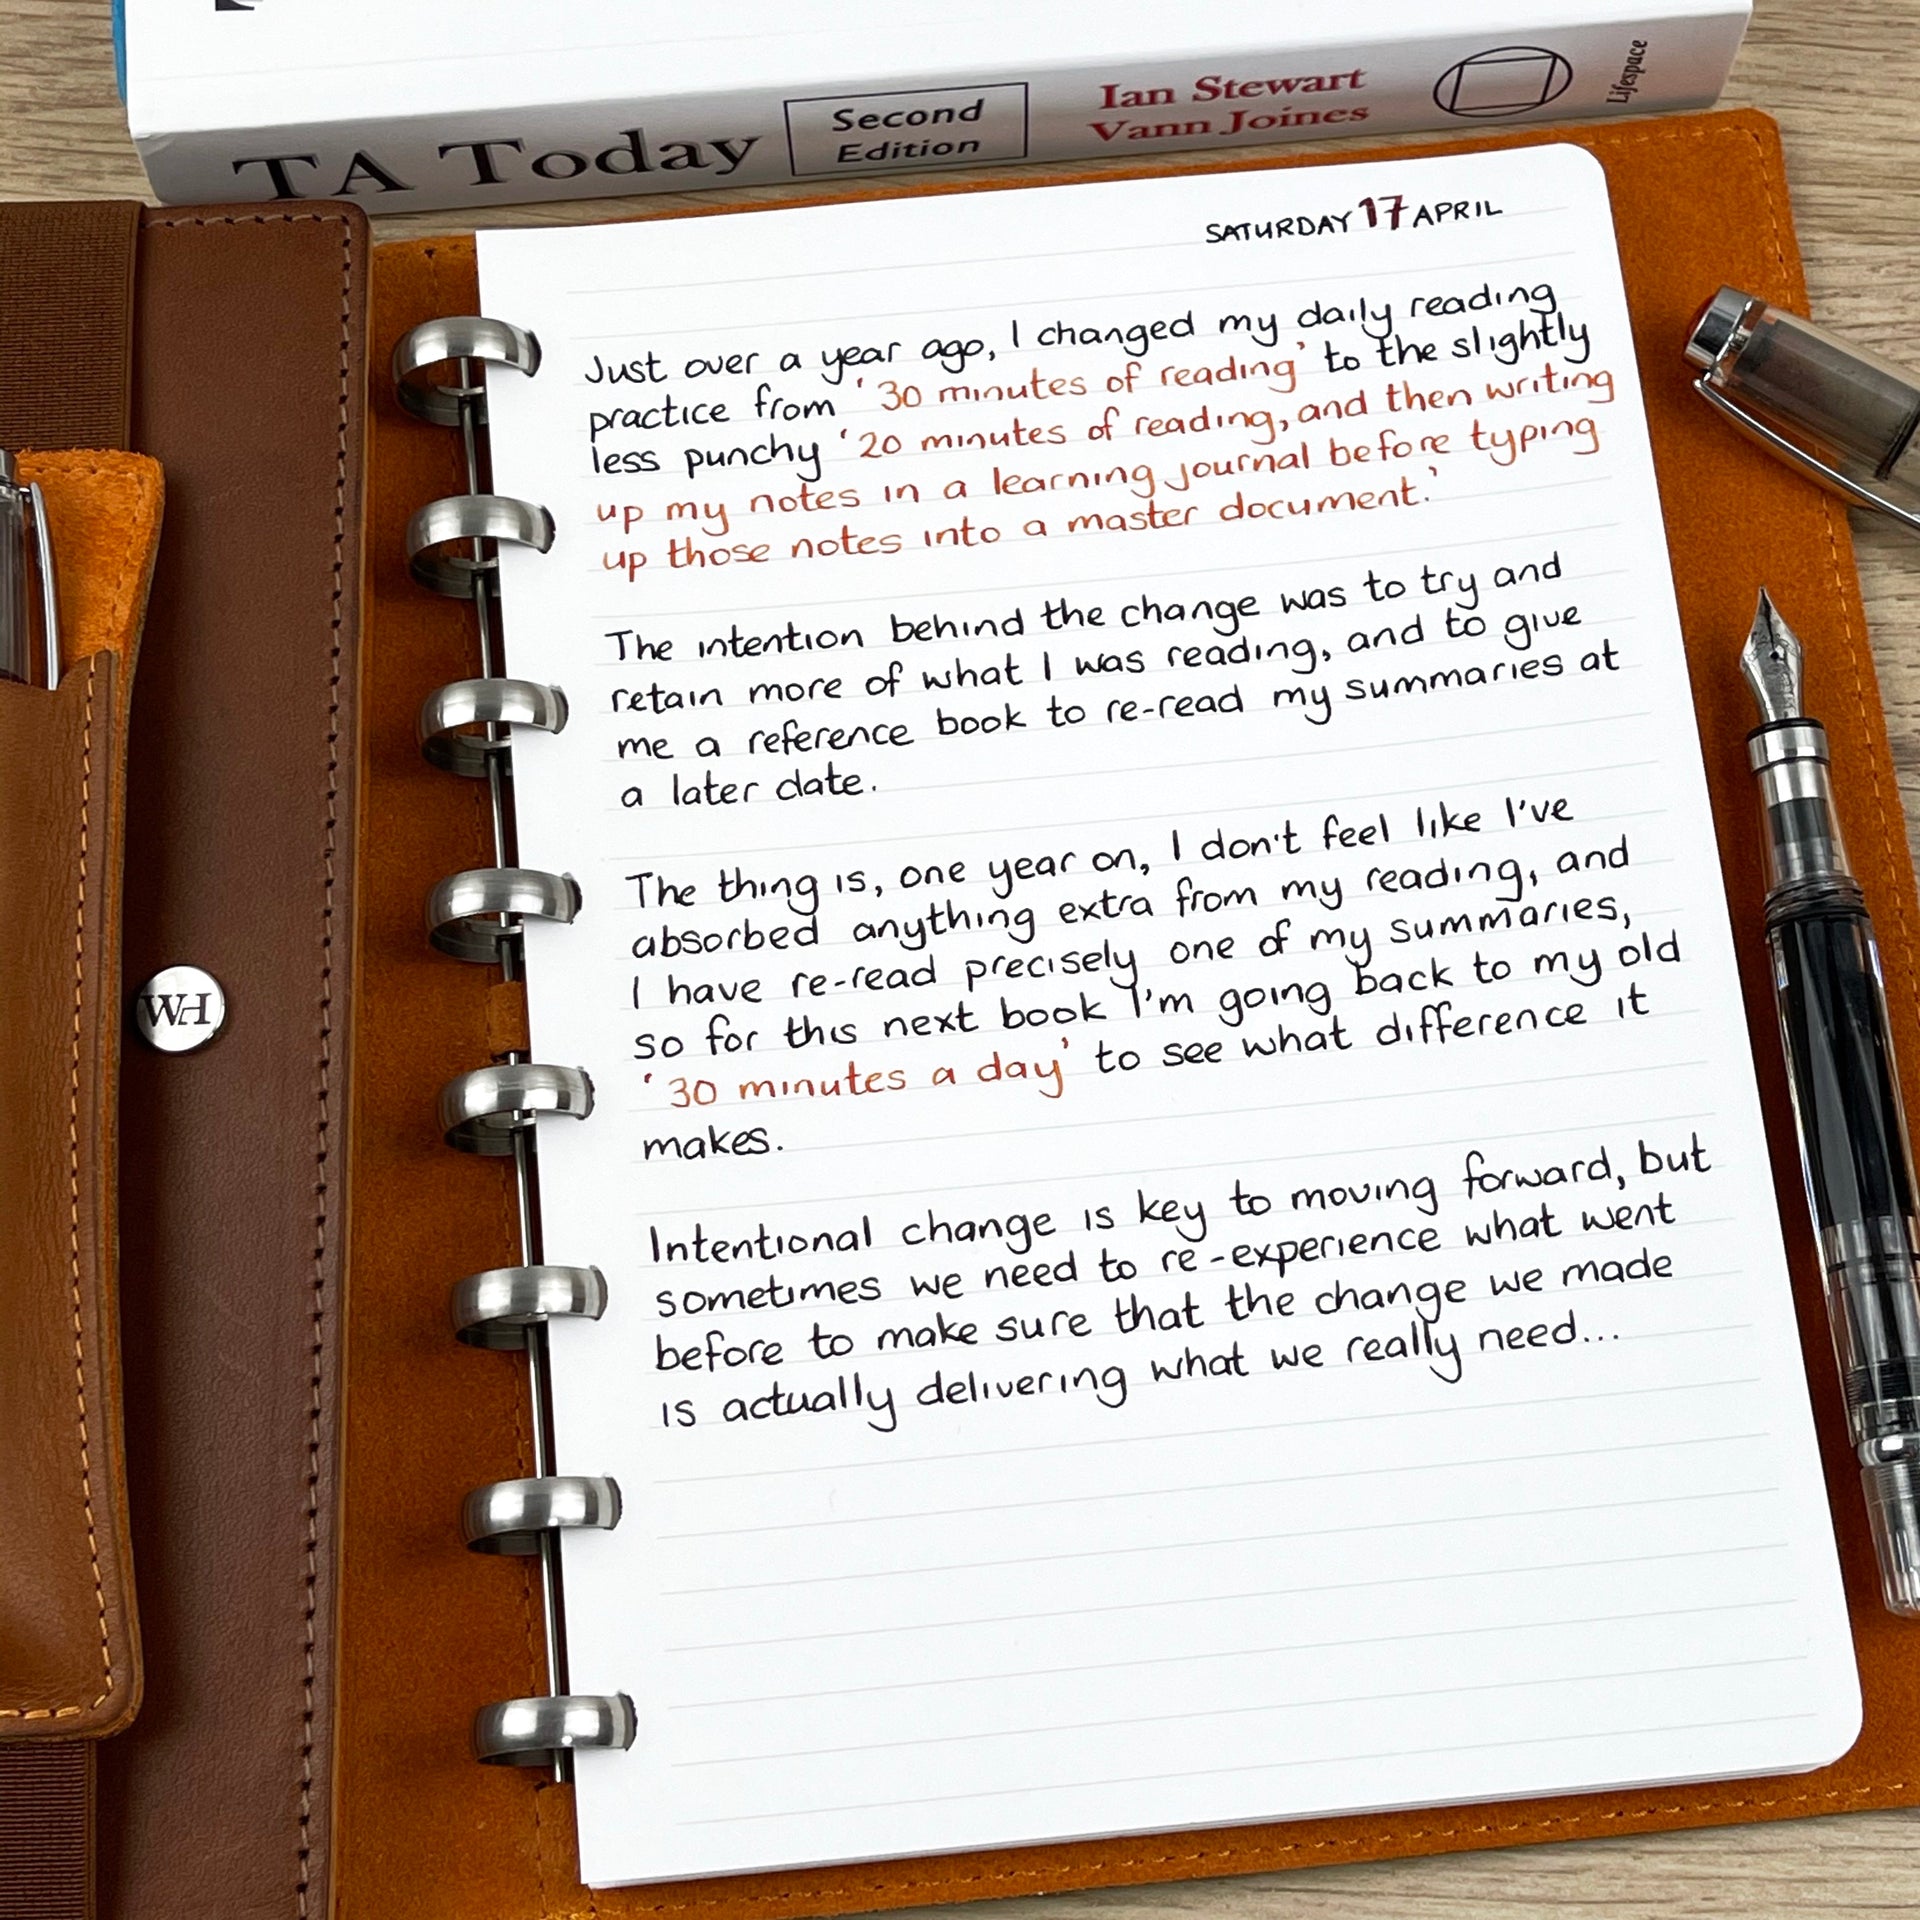 TA Today
Second
Edition
Ian Stewart
Vann Joines
Lifespace
SATURDAY 17 APRIL
Just over a year ago, I changed my daily reading
practice from '30 minutes of reading' to the slightly
less punchy '20 minutes of reading, and then writing
up my notes in a learning journal before typing
up those notes into a master document.'
The intention behind the change was to try and
retain more of what I was reading, and to give
me a reference book to re-read my summaries at
a later date.
The thing is, one year on, I don't feel like I've
absorbed anything extra from my reading, and
I have re-read precisely one of my summaries,
so for this next book I'm going back to my old
'30 minutes a day' to see what difference it
makes.
Intentional change is key to moving forward, but
sometimes we need to re-experience what went
before to make sure that the change we made
is actually delivering what we really need...
WH